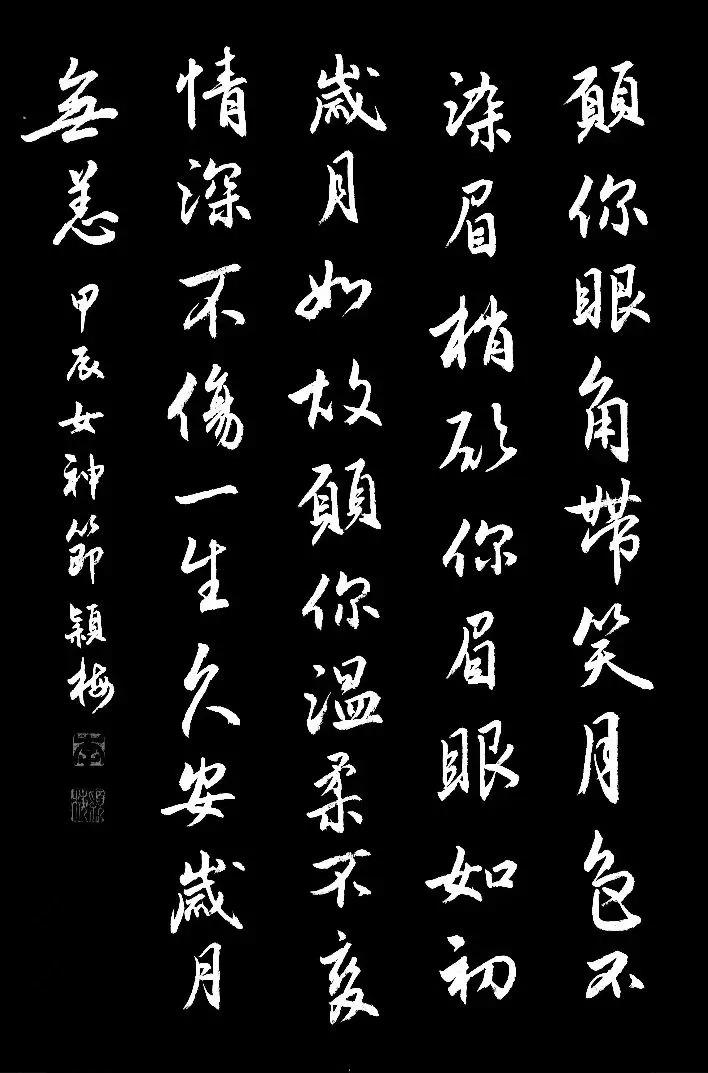 願你眼角帶笑月色不
染眉梢願你眉眼如初
歲月如故願你溫柔不變
情深不傷一生久安歲月
無恙 甲辰女神節穎梅